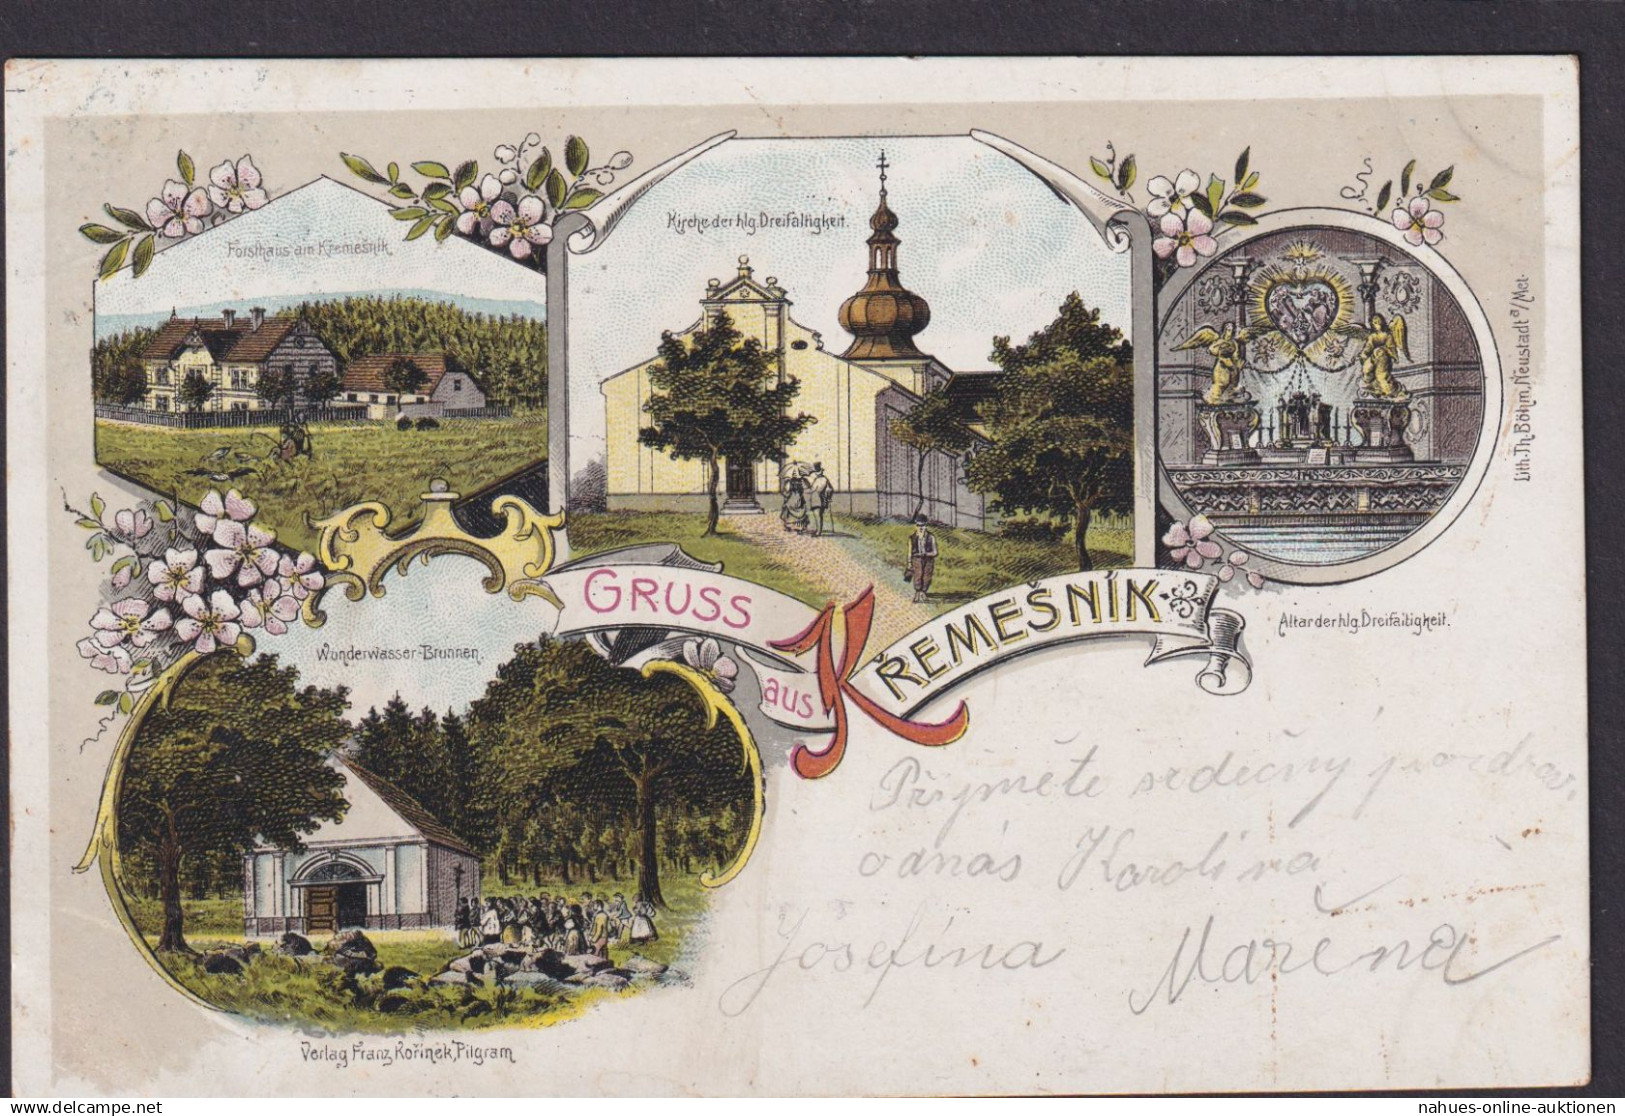 Forsthaus am Křemešník
Kirche der hlg. Dreifaltigkeit.
GRUSS
aus
KŘEMEŠNÍK
Altar der hlg. Dreifaltigkeit.
Lith. Th. Böhm, Neustadt a/Met.
Wunderwasser-Brunnen.
Verlag Franz Kořínek, Pilgram
Přijměte srdečný pozdrav
od nás Karolina
Josefína Mařena
nahues-online-auktionen